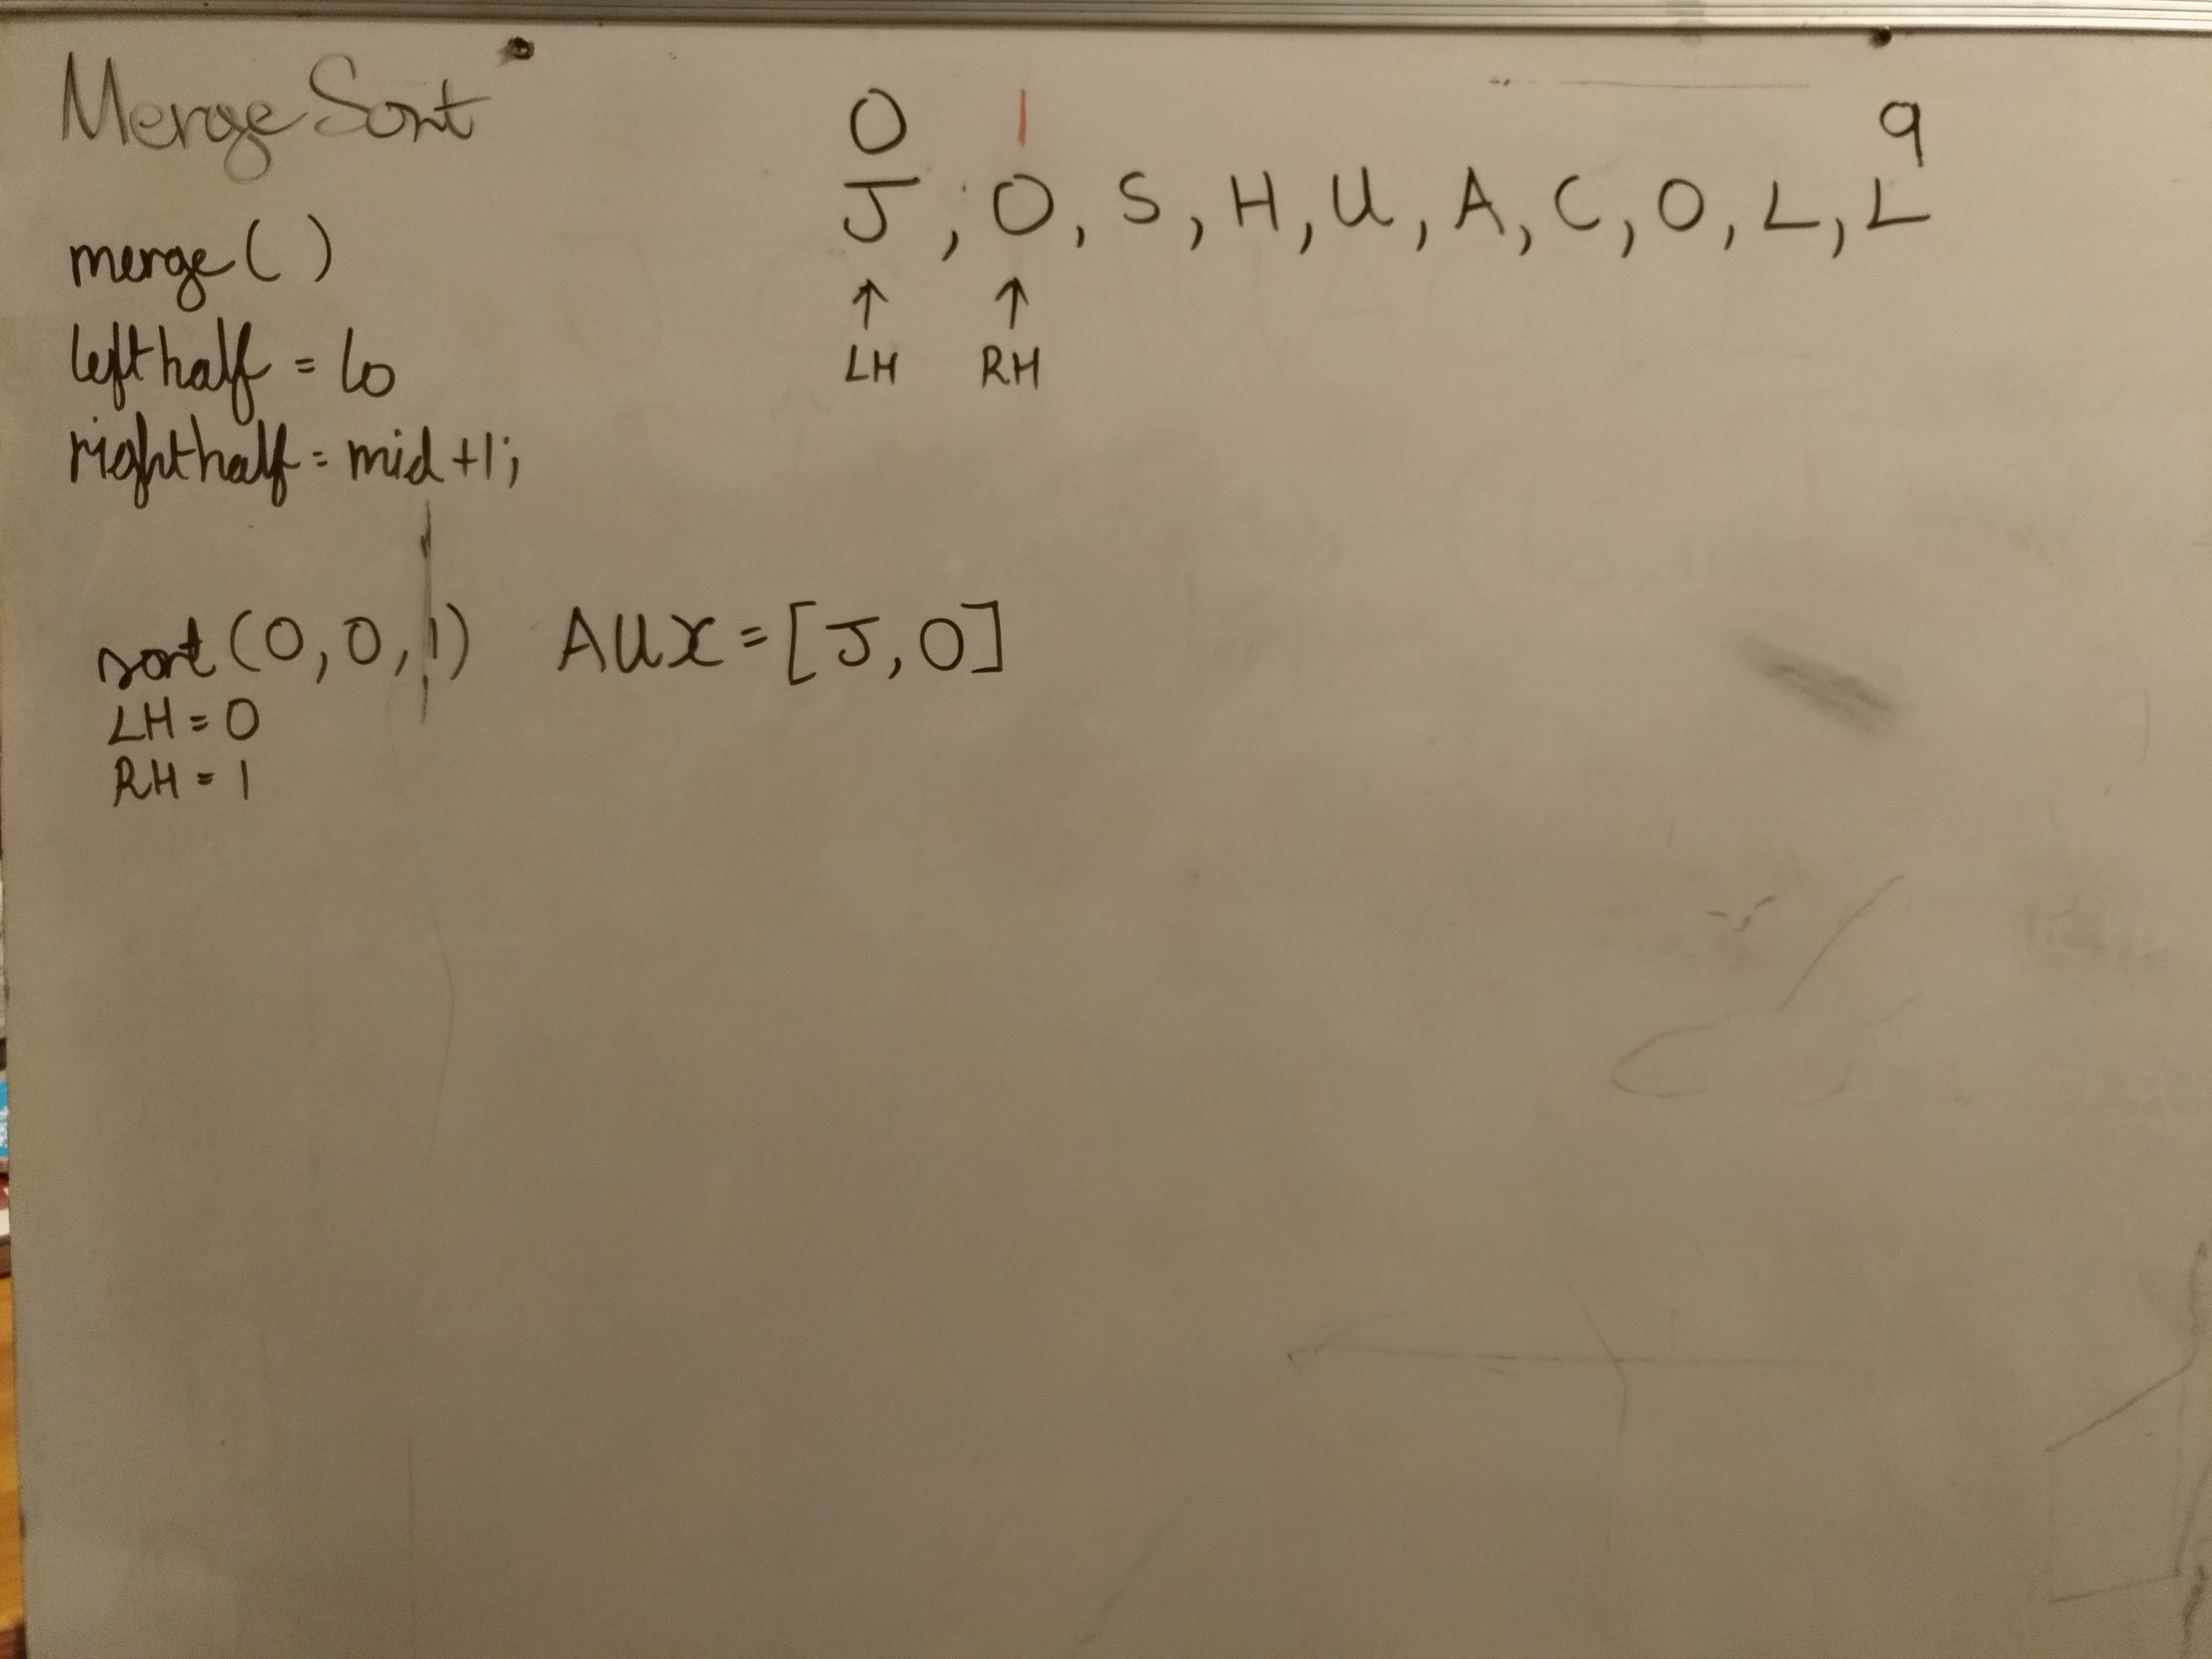 Merge Sort
0 1 9
J, O, S, H, U, A, C, O, L, L
↑ ↑
LH RH
merge( )
lefthalf = lo
righthalf = mid+1;
sort(0,0,1) AUX=[J,O]
LH=0
RH=1